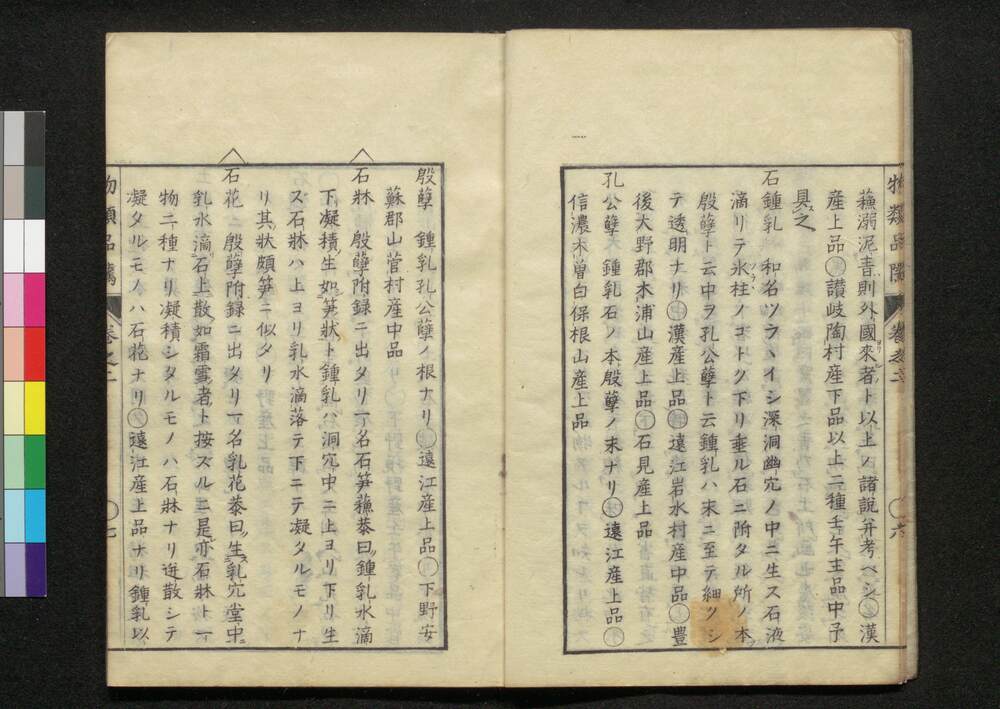 物類品隲 巻之二 六
蘓溺泥青則外國來者ト以上ノ諸說并考ベシ 漢
産上品 讃岐陶村産下品以上二種壬午主品中予
具之
石鍾乳 和名ツラヽイシ深洞幽穴ノ中ニ生ス石液
滴リテ氷柱ノコトク下リ垂ル石ニ附タル所ノ本
殷孽ト云中ヲ孔公孽ト云鍾乳ハ末ニ至テ細ソシ
テ透明ナリ 漢産上品 遠江岩水村産中品 豊
後大野郡木浦山産上品 石見産上品
孔公孽 鍾乳石ノ本殷孽ノ末ナリ 遠江産上品
信濃木曽白保根山産上品
殷孽 鍾乳孔公孽ノ根ナリ 遠江産上品 下野安
蘓郡山菅村産中品
石牀 殷孽附録ニ出タリ一名石笋蘓恭曰鍾乳水滴
下凝積生如笋狀ト鍾乳ハ洞穴中ニ上ヨリ下リ生
ズ石牀ハ上ヨリ乳水滴落テ下ニテ凝タルモノナ
リ其狀頗笋ニ似タリ
石花 殷孽附録ニ出タリ一名乳花恭曰生乳穴堂中
乳水滴石上散如霜雪者ト按ズルニ是亦石牀ト一
物二種ナリ凝積シタルモノハ石牀ナリ迸散シテ
凝タルモノハ石花ナリ 遠江産上品ナリ鍾乳以
物類品隲 巻之二 七